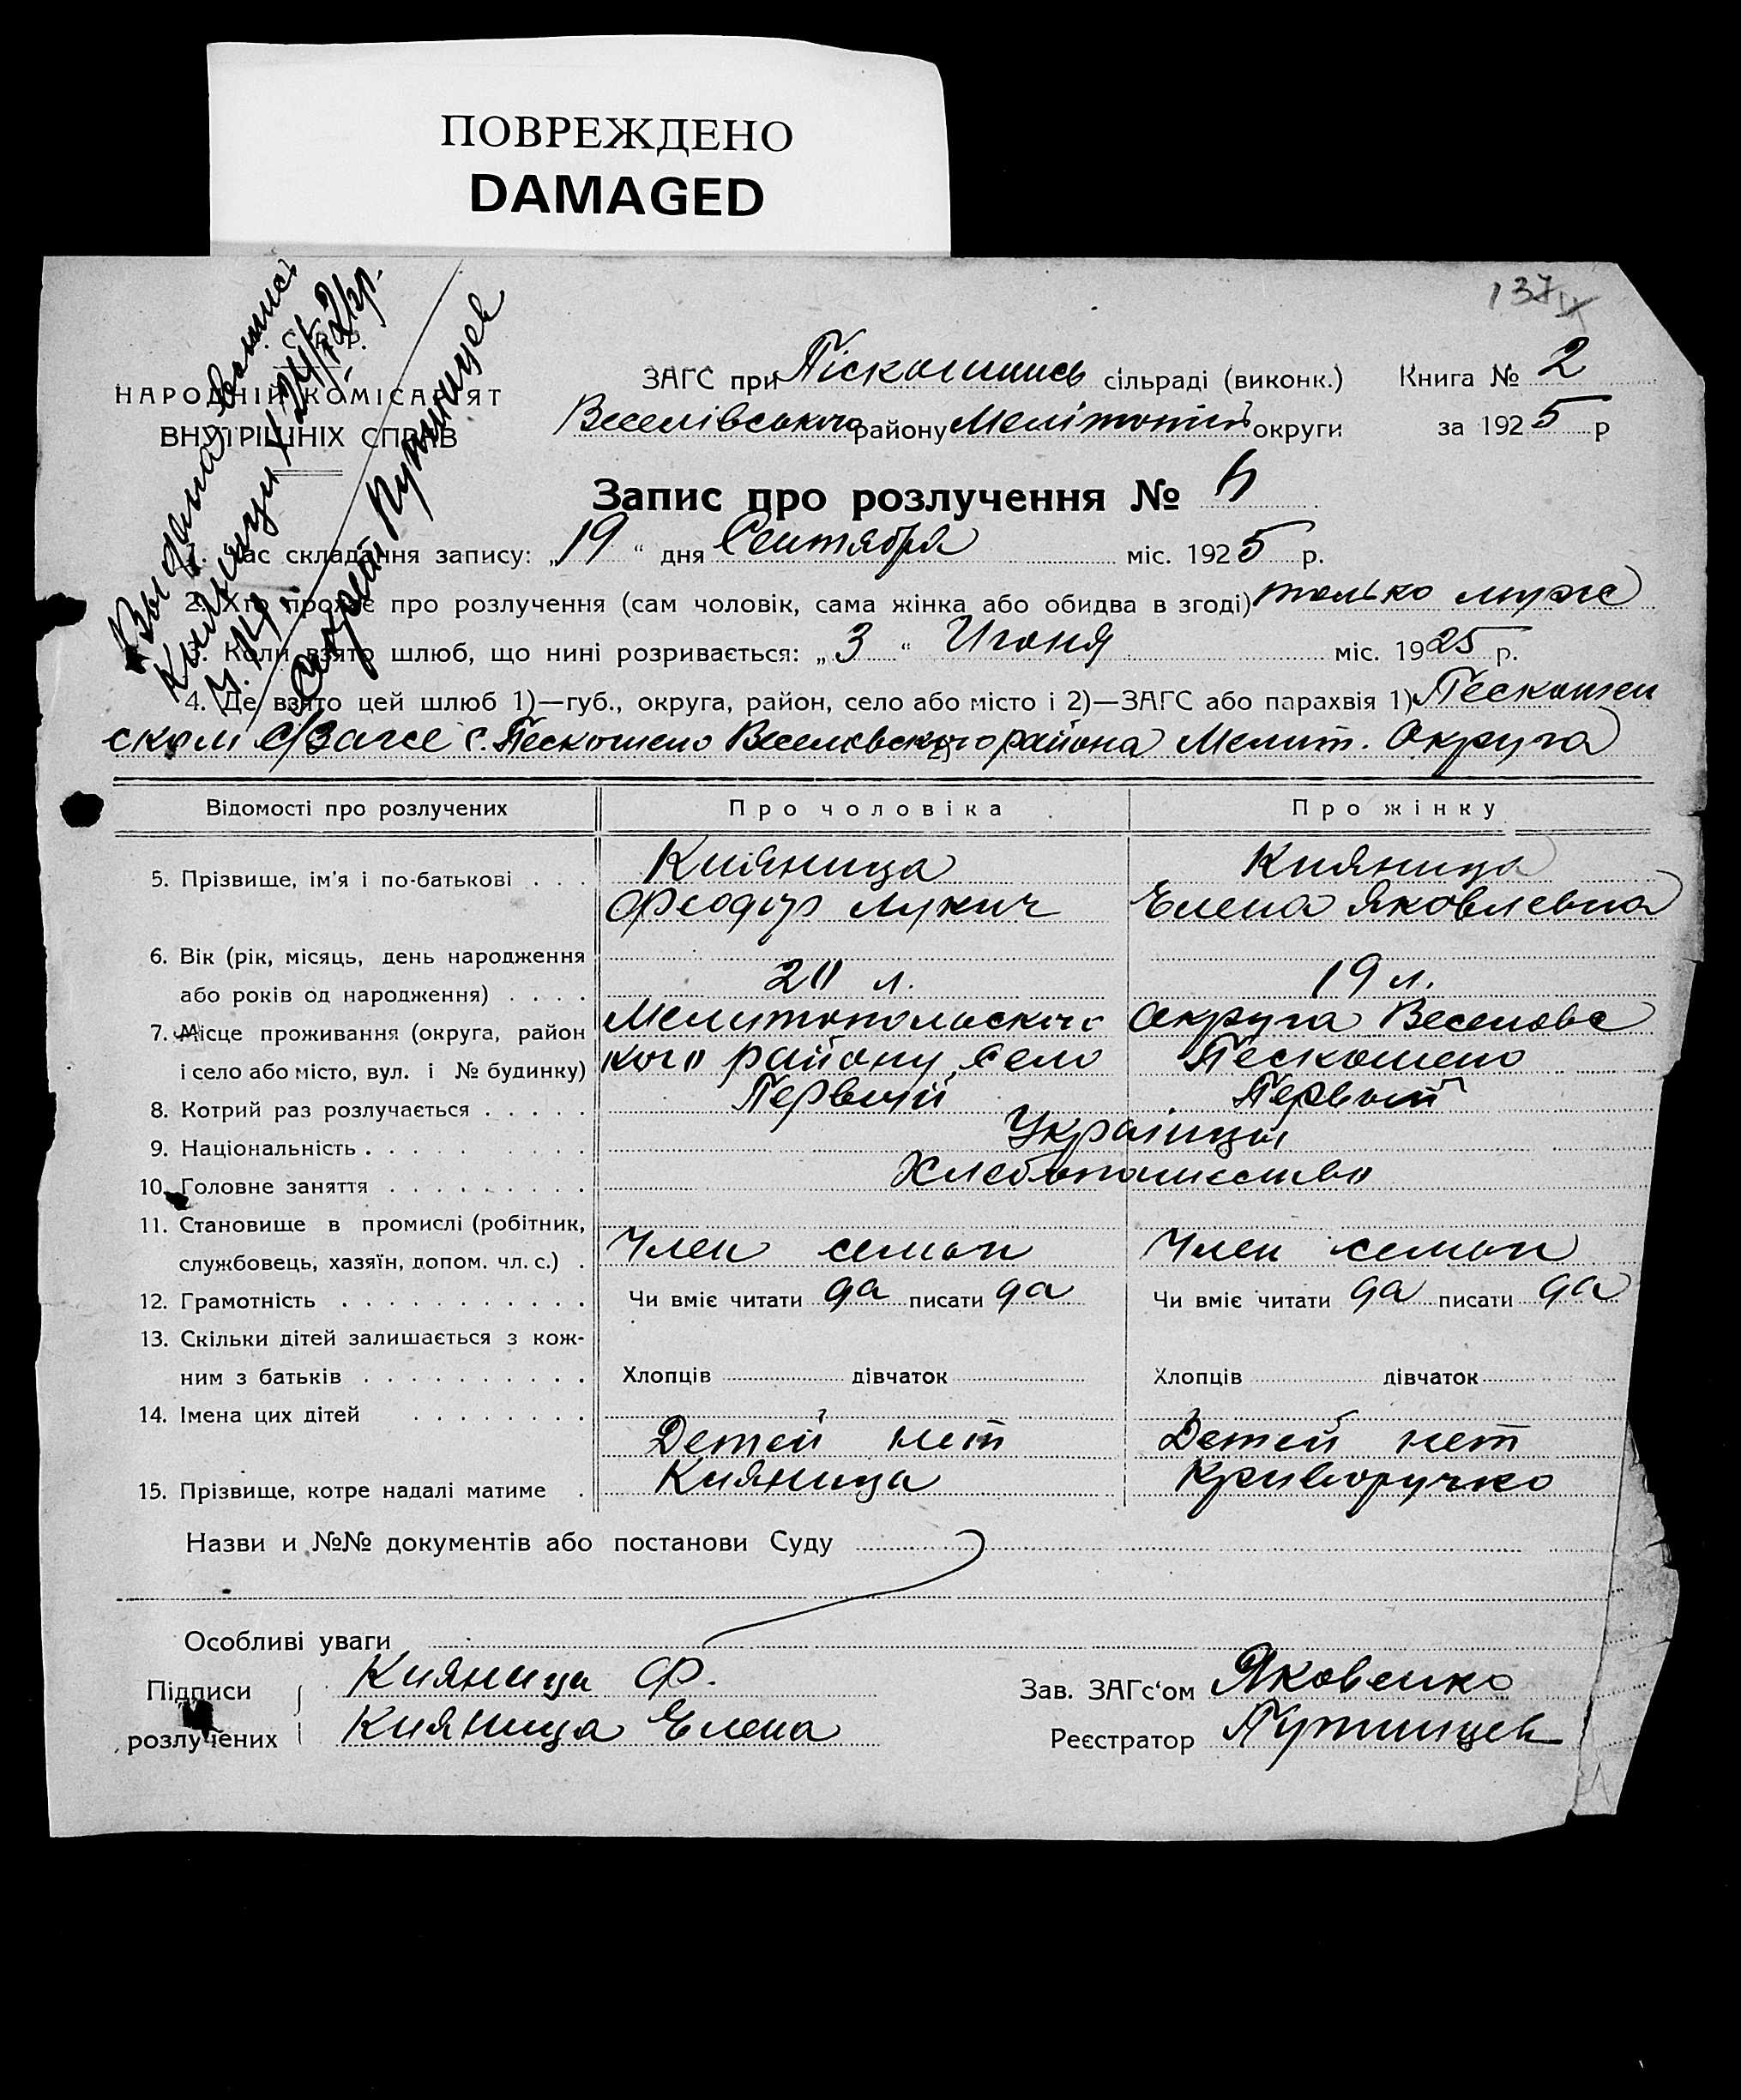 ПОВРЕЖДЕНО
DAMAGED
137
С. Р. Р.
НАРОДНІЙ КОМІСАРІЯТ
ВНУТРІШНІХ СПРАВ
Выдана выпись
Киянице
Секрет. Путинцев
ЗАГС при Піскошинсь сільраді (виконк.) Книга № 2
Веселівського району Мелітопільс округи за 1925 р
Запис про розлучення № 4
1. Час складання запису: „19“ дня Сентября міс. 1925 р.
2. Хто прохає про розлучення (сам чоловік, сама жінка або обидва в згоді) только муже
3. Коли взято шлюб, що нині розривається: „3“ Июня міс. 1925 р.
4. Де взято цей шлюб 1)—губ., округа, район, село або місто і 2)—ЗАГС або парахвія 1) Пескошен
ском С/Загсе с. Пескошено Веселовского района Мелит. Округа
Відомості про розлучених Про чоловіка Про жінку
5. Прізвище, ім'я і по-батькові Кияница Кияница
Феодор Лукич Елена Яковлевна
6. Вік (рік, місяць, день народження
або років од народження) 20 л. 19 л.
7. Місце проживання (округа, район Мелитопольского Округа Веселовс
і село або місто, вул. і № будинку) кого району село Пескошено
8. Котрий раз розлучається Первый Первый
9. Національність Украинцы
10. Головне заняття Хлебопашество
11. Становище в промислі (робітник,
службовець, хазяїн, допом. чл. с.) Член семьи Член семьи
12. Грамотність Чи вміє читати да писати да Чи вміє читати да писати да
13. Скільки дітей залишається з кож-
ним з батьків Хлопців дівчаток Хлопців дівчаток
14. Імена цих дітей
Детей нет Детей нет
15. Прізвище, котре надалі матиме Кияница Криворучко
Назви и №№ документів або постанови Суду
Особливі уваги
Підписи Кияница Ф. Зав. ЗАГс'ом Яковенко
розлучених Кияница Елена Реєстратор Путинцев